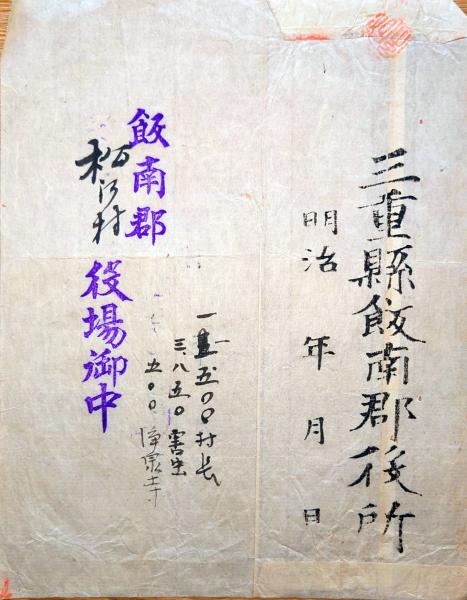 三重縣飯南郡役所
明治 年 月 日
一五〇〇村長
三八五〇害虫
五〇〇 浄泉寺
飯南郡
松江村
役場御中